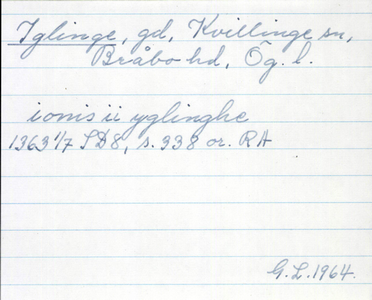 Yglinge, gd, Kvillinge sn,
Bråbo hd, Ög. l.
ionis ii yglinghe
1363 1/7 SD8, s. 338 or. RA
G.L. 1964.